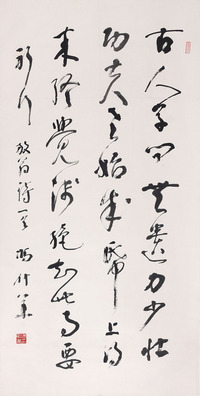 古人學問無遺力少壯
功夫老始成紙上得
來終覺淺絕知此事要
躬行 放翁詩一首